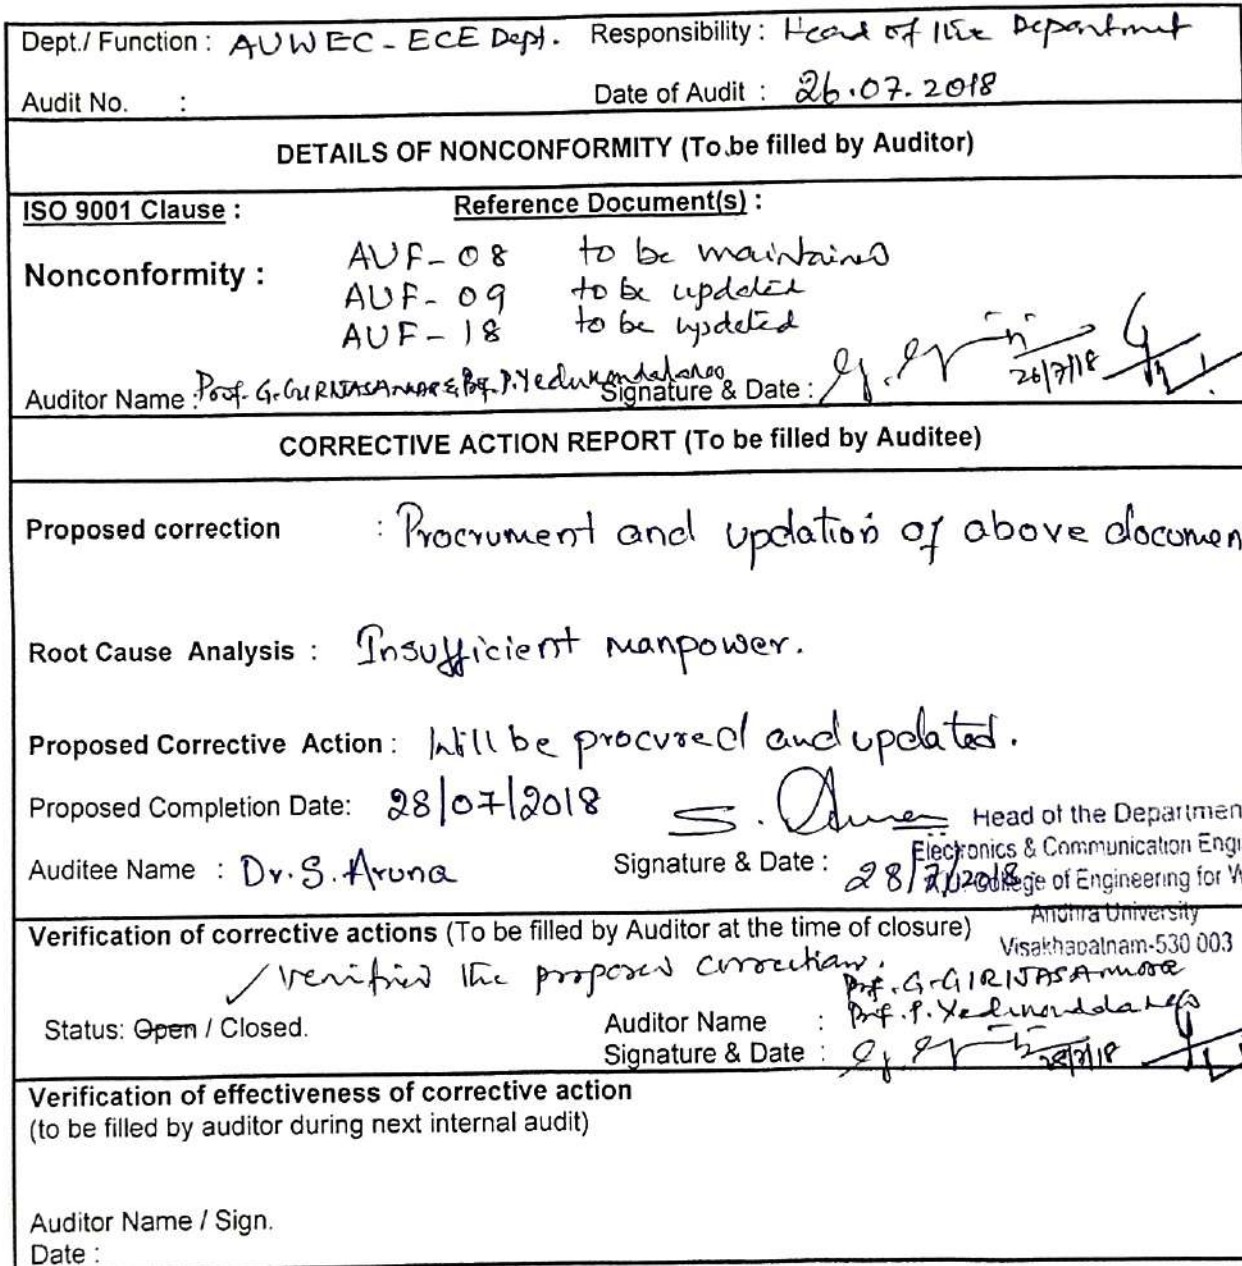 Dept./ Function : AUWEC - ECE Dept. Responsibility : Head of the Department
Audit No. : Date of Audit : 26.07.2018
DETAILS OF NONCONFORMITY (To be filled by Auditor)
ISO 9001 Clause : Reference Document(s) :
Nonconformity : AUF-08 to be maintained
AUF-09 to be updated
AUF-18 to be updated
Auditor Name : Prof. G. & Prof. P. Signature & Date : 26/7/18
CORRECTIVE ACTION REPORT (To be filled by Auditee)
Proposed correction : Procrument and updation of above documen
Root Cause Analysis : Insufficient manpower.
Proposed Corrective Action : Will be procured and updated.
Proposed Completion Date: 28/07/2018
Head of the Departmen
Electronics & Communication Engi
Auditee Name : Dr. S. Aruna Signature & Date : 28/7/2018
College of Engineering for W
Andhra University
Visakhapatnam-530 003
Verification of corrective actions (To be filled by Auditor at the time of closure)
verified the proposed correction.
Status: Open / Closed. Auditor Name : Prof. G. Prof. P.
Signature & Date : 28/7/18
Verification of effectiveness of corrective action
(to be filled by auditor during next internal audit)
Auditor Name / Sign.
Date :